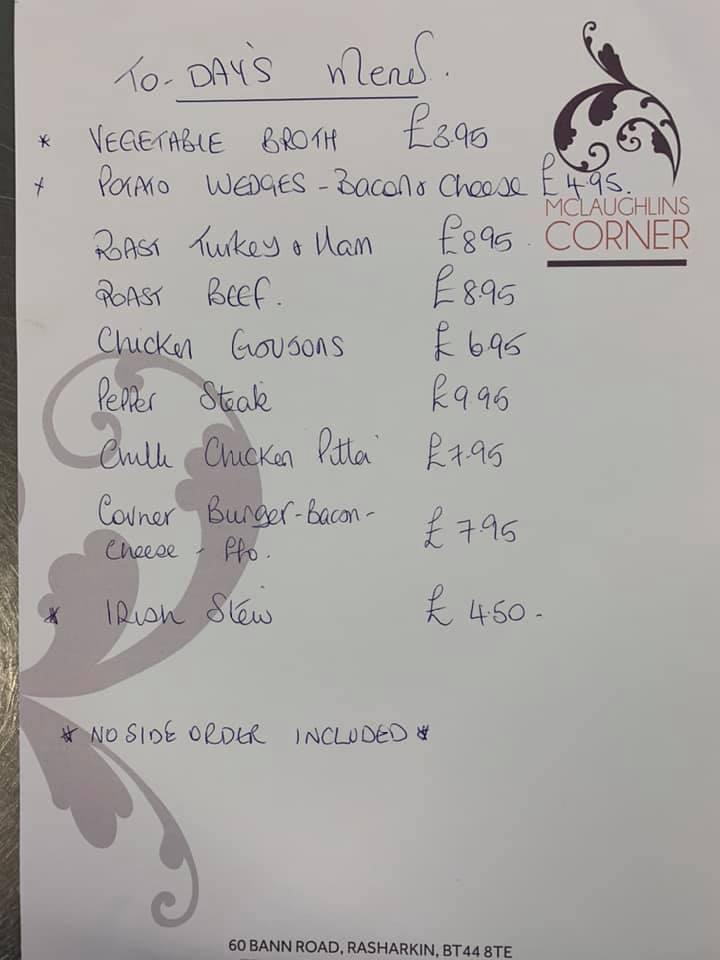 To-DAY'S Menu.
* VEGETABLE BROTH £3.95
* POTATO WEDGES - Bacon & Cheese £4.95.
MCLAUGHLINS
CORNER
ROAST Turkey & Ham £8.95
ROAST BEEF. £8.95
Chicken GOUJONS £6.95
Pepper Steak £9.95
Chilli Chicken Pitta £7.95
Corner Burger-Bacon-
Cheese - P/o. £7.95
* IRISH Stew £4.50-
* NO SIDE ORDER INCLUDED *
60 BANN ROAD, RASHARKIN, BT44 8TE